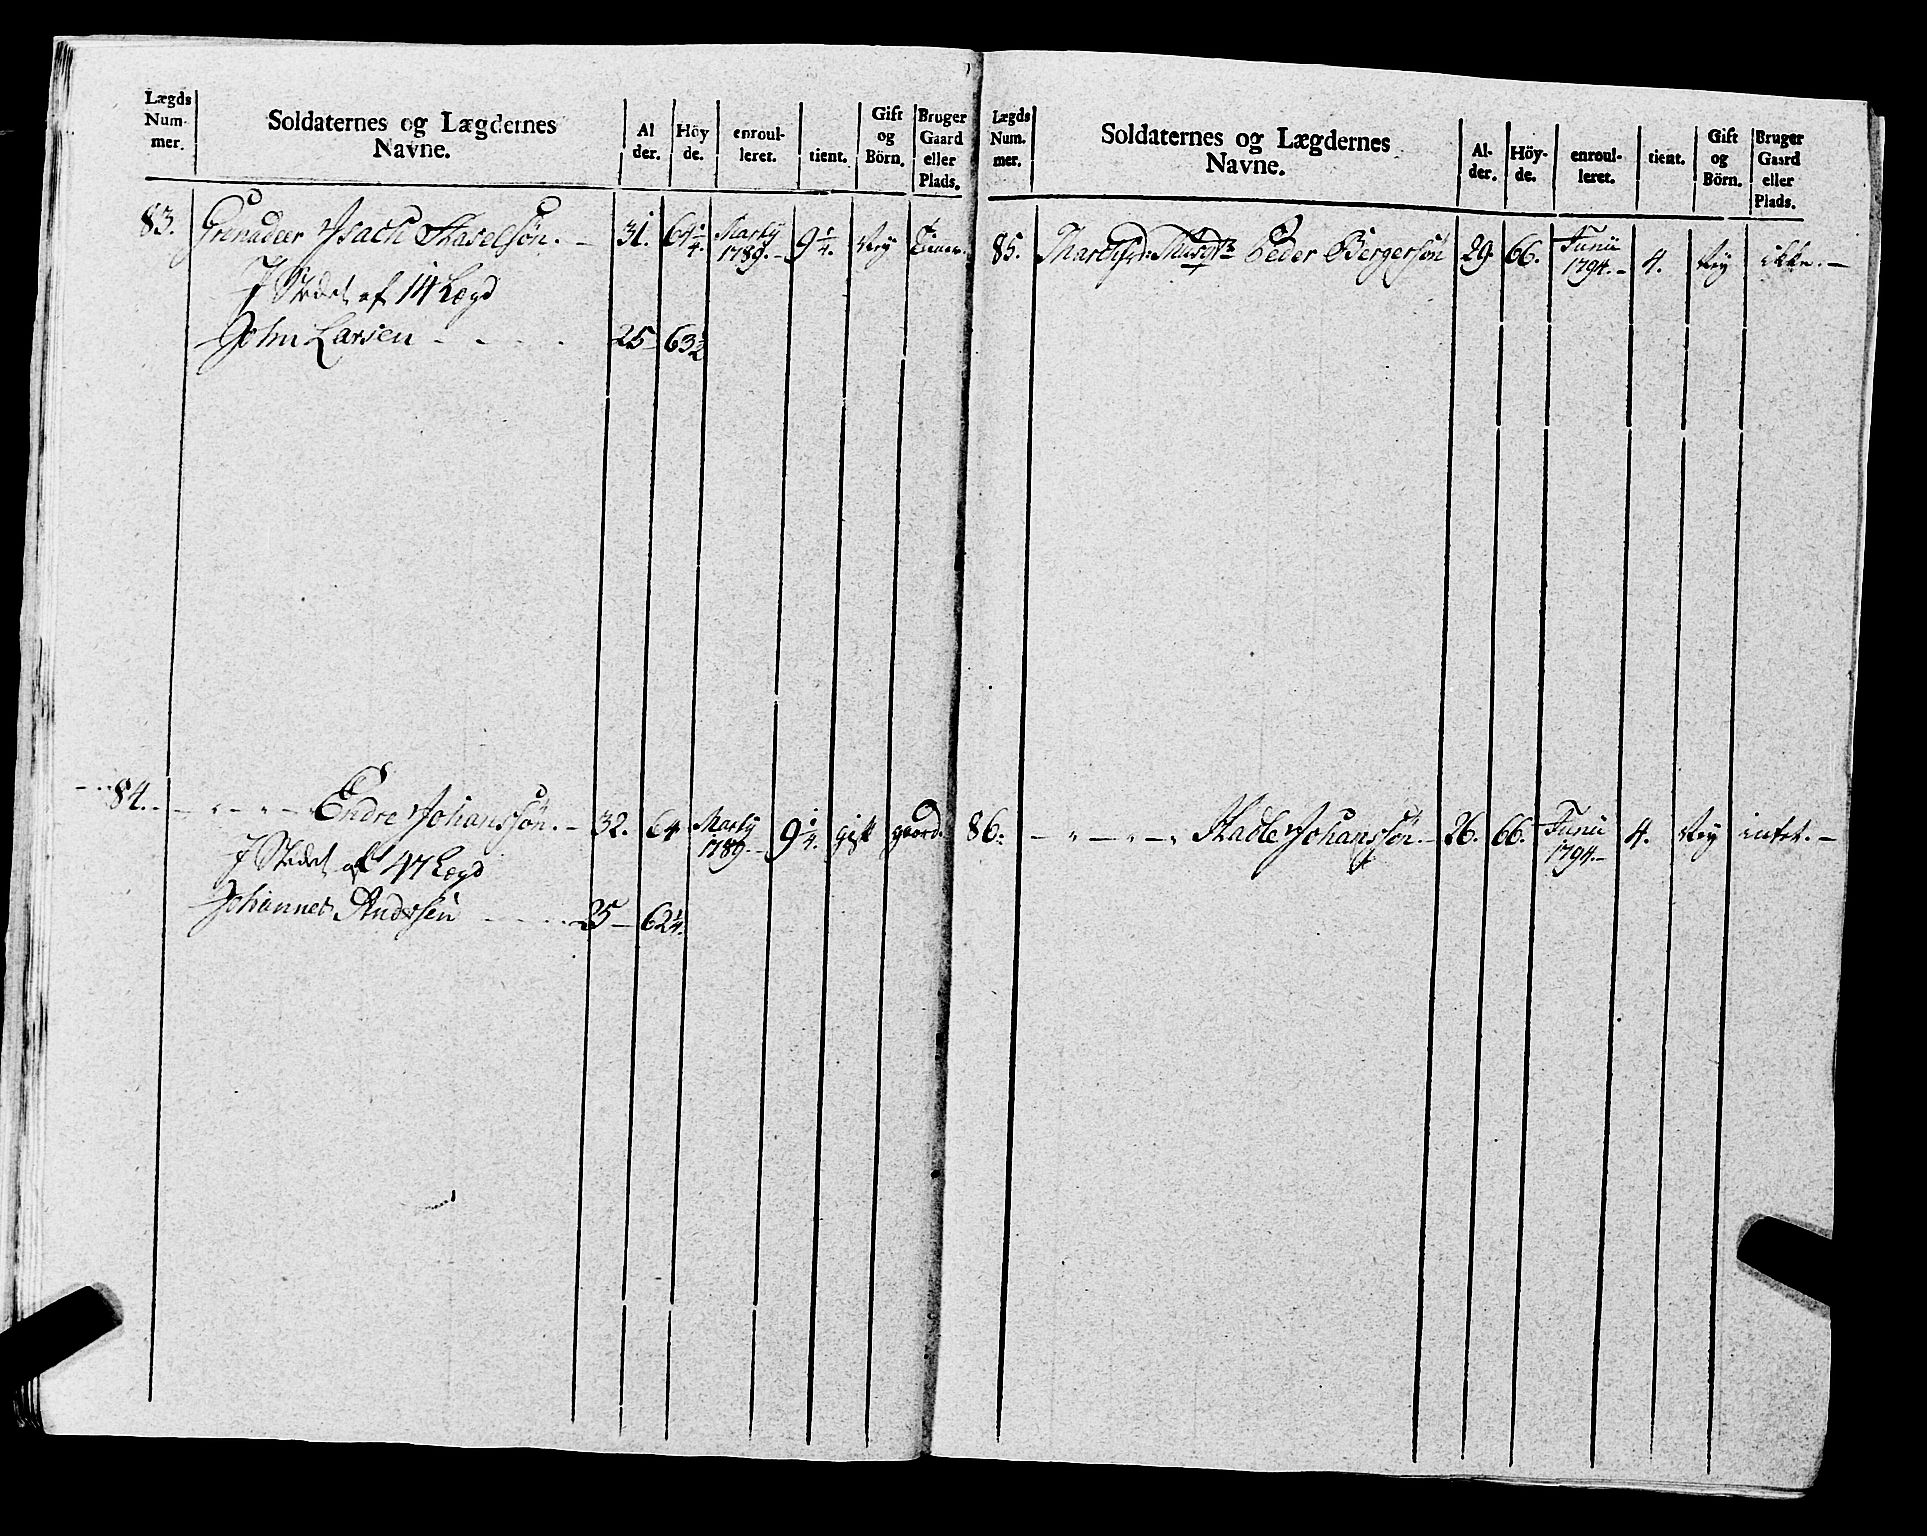 Lægds Num- mer.
Soldaternes og Lægdernes Navne.
Al der.
Höy de.
enroul- leret.
tient.
Gift og Börn.
Bruger Gaard eller Plads.
83. Grenadeer Isach Haselsøn. – 31. 64 1/4. Marty 1789. – 9 1/4. Ney
I Stædet af 14 Lægd
John Larsen - - - - 25 63 1/2
84. – „ – „ – Endre Johanssøn. – 32. 64 Marty 1789. – 9 1/4. gift gaard.
I Stædet af 47 Lægd
Johannes Andersen - - - - 25 – 62 1/4.
Lægds Num. mer.
Soldaternes og Lægdernes Navne.
Al- der.
Höy- de.
enroul- leret.
tient.
Gift og Börn.
Bruger Gaard eller Plads.
85. Peder Bergersøn 29. 66. Junii 1794. – 4. Ney ikke. –
86. – „ – „ – „ Johanssøn. – 26. 66. Junii 1794. – 4. Ney intet. –